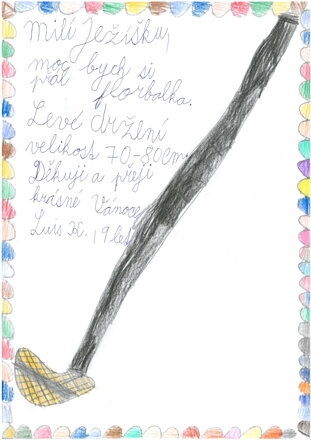 Milí Ježíšku,
moc bych si
přál florbalka.
Levé držení
velikost 70-80cm.
Děkuji a přeji
krásné Vánoce
Luis H. 9 let